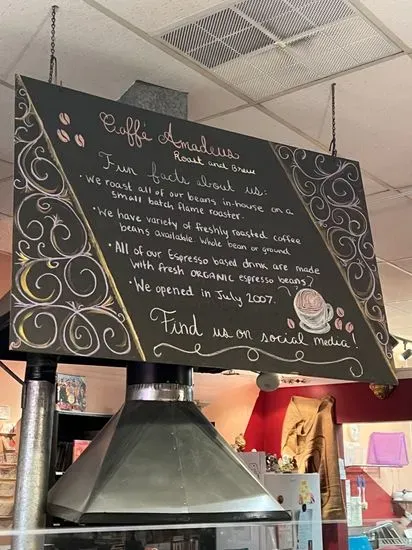 Caffé Amadeus
Roast and Brew
Fun facts about us:
• We roast all of our beans in-house on a
small batch flame roaster.
• We have variety of freshly roasted coffee
beans available. Whole bean or ground.
• All of our Espresso based drink are made
with fresh ORGANIC espresso beans?
• We opened in July 2007.
Find us on social media!